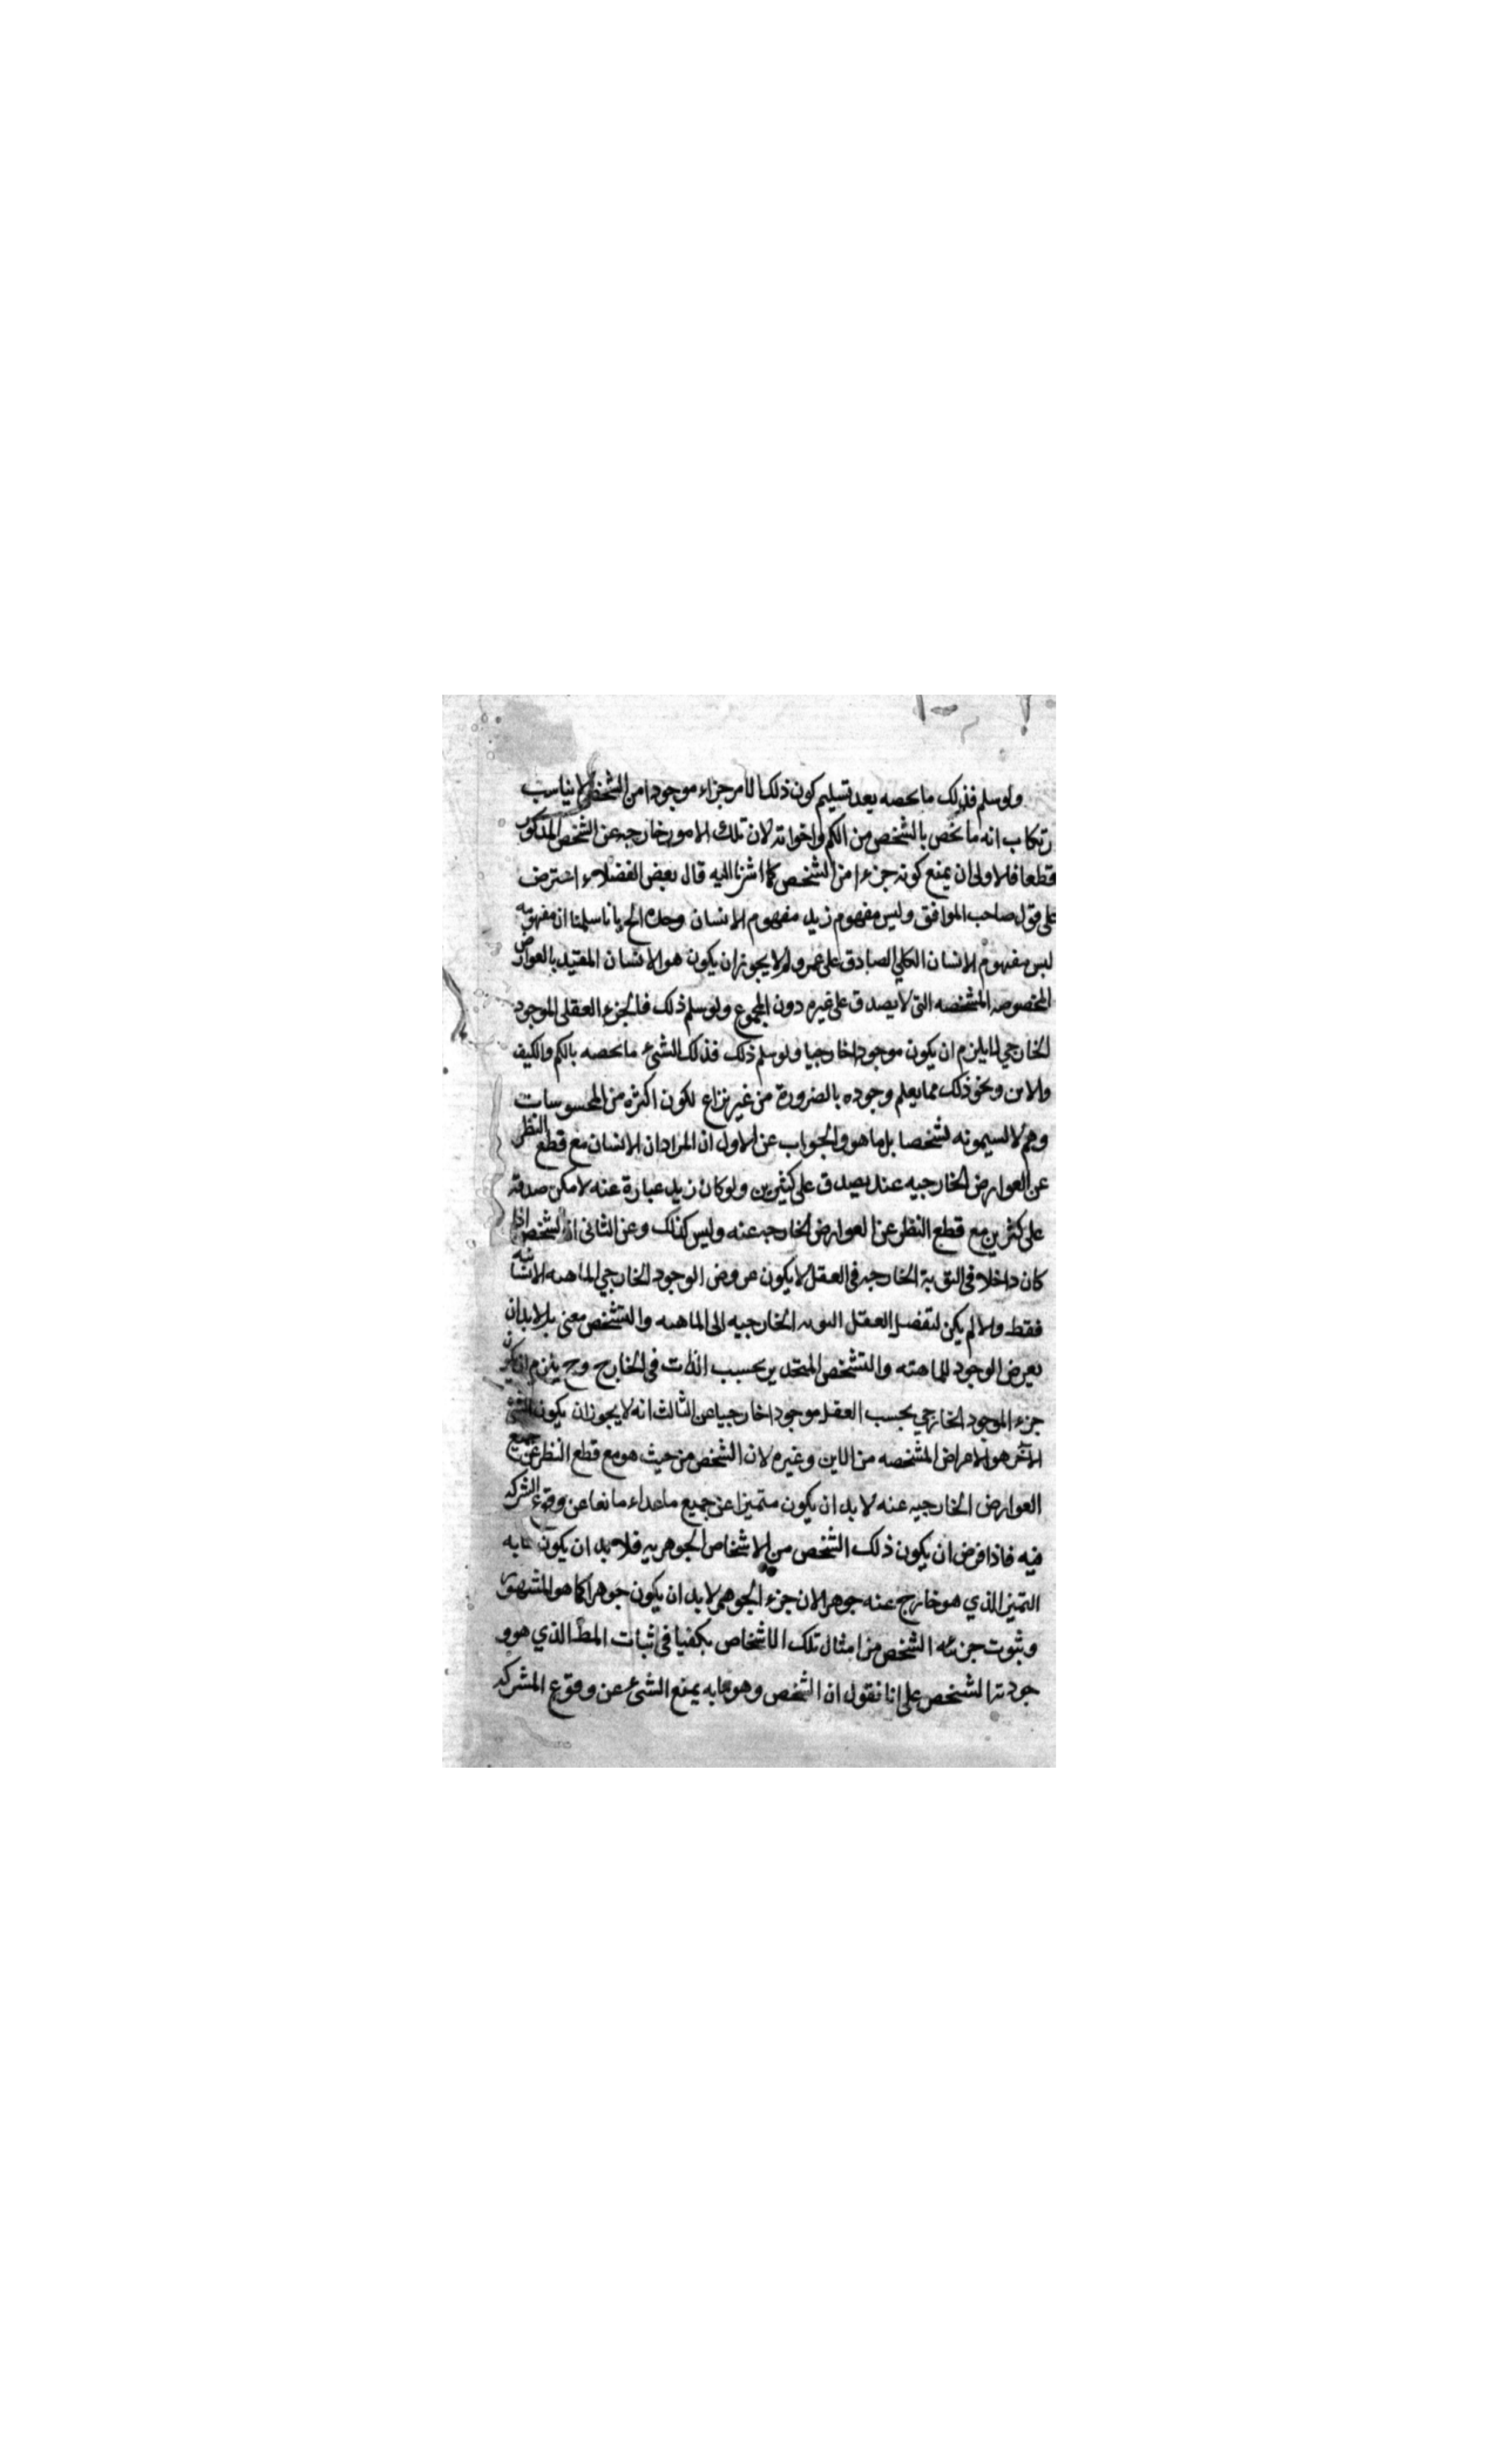 ولو سلم فذلك ما يخصه بعد تسليم كون ذلك الامر جزاء موجودا من الشخص لا يناسب
رتكاب انه ما يخص بالشخص من الكم واخواته لان تلك الامور خارجه عن الشخص المذكور
قطعا فلاولى ان يمنع كونه جزءا من الشخص كما اشرنا اليه قال بعض الفضلاء اعترض
على قول صاحب المواقف وليس مفهوم زيد مفهوم الانسان وحده الخ بانا سلمنا ان مفهومه
ليس مفهوم الانسان الكلي الصادق على عمرو لم لا يجوز ان يكون هو الانسان المقيد بالعوارض
المخصوصه المشخصه التى لا يصدق على غيره دون المجموع ولو سلم ذلك فالجزء العقلى الموجود
الخارجي لا يلزم ان يكون موجودا خارجيا ولو سلم ذلك فذلك الشئ ما يخصه بالكم والكيف
والاين ونحو ذلك مما يعلم وجوده بالضرورة من غير نزاع لكون اكثره من المحسوسات
وهم لا يسمونه تشخصا بل ما هو والجواب عن الاول ان المراد ان الانسان مع قطع النظر
عن العوارض الخارجيه عنه يصدق على كثيرين ولو كان زيد عبارة عنه لامكن صدقه
على كثيرين مع قطع النظر عن العوارض الخارجه عنه وليس كذلك وعن الثانى ان الشخص اذا
كان داخلا فى الهوية الخارجه فى العقل لا يكون عروض الوجود الخارجي للماهيه الانسانيه
فقط والا لم يكن لتفصيل العقل الهويه الخارجيه الى الماهيه والتشخص معنى بل لا بد ان
يعرض الوجود للماهيه والتشخص المتحدين بحسب الذات فى الخارج وح يلزم ان يكون
جزء الموجود الخارجي بحسب العقل موجودا خارجيا عن الثالث انه لا يجوز ان يكون الشئ
الآخر هو الاعراض المشخصه من الاين وغيره لان الشخص من حيث هو مع قطع النظر عن جميع
العوارض الخارجيه عنه لا بد ان يكون متميزا عن جميع ما عداه مانعا عن وقوع الشركه
فيه فاذا فرض ان يكون ذلك الشخص من الاشخاص الجوهريه فلا بد ان يكون مابه
التميز الذي هو خارج عنه جوهرا لان جزء الجوهر لا بد ان يكون جوهرا كما هو المشهور
وثبوت جزئيه الشخص من امثال تلك الاشخاص يكفينا فى اثبات المط الذي هو و
جوديه الشخص على انا نقول ان الشخص وهو مابه يمنع الشئ عن وقوع المشركه